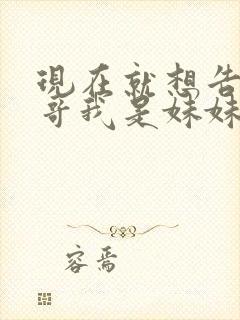 現在就想告
哥我是妹妹
容焉